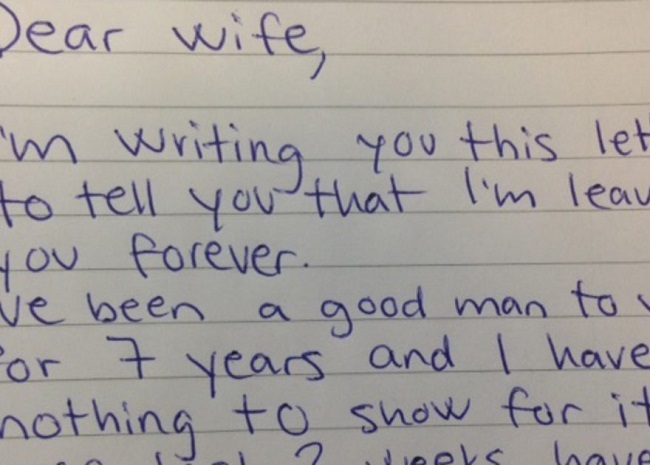 Dear wife,
I'm writing you this let
to tell you that I'm leav
you forever.
I've been a good man to
for 7 years and I have
nothing to show for it
2 weeks have